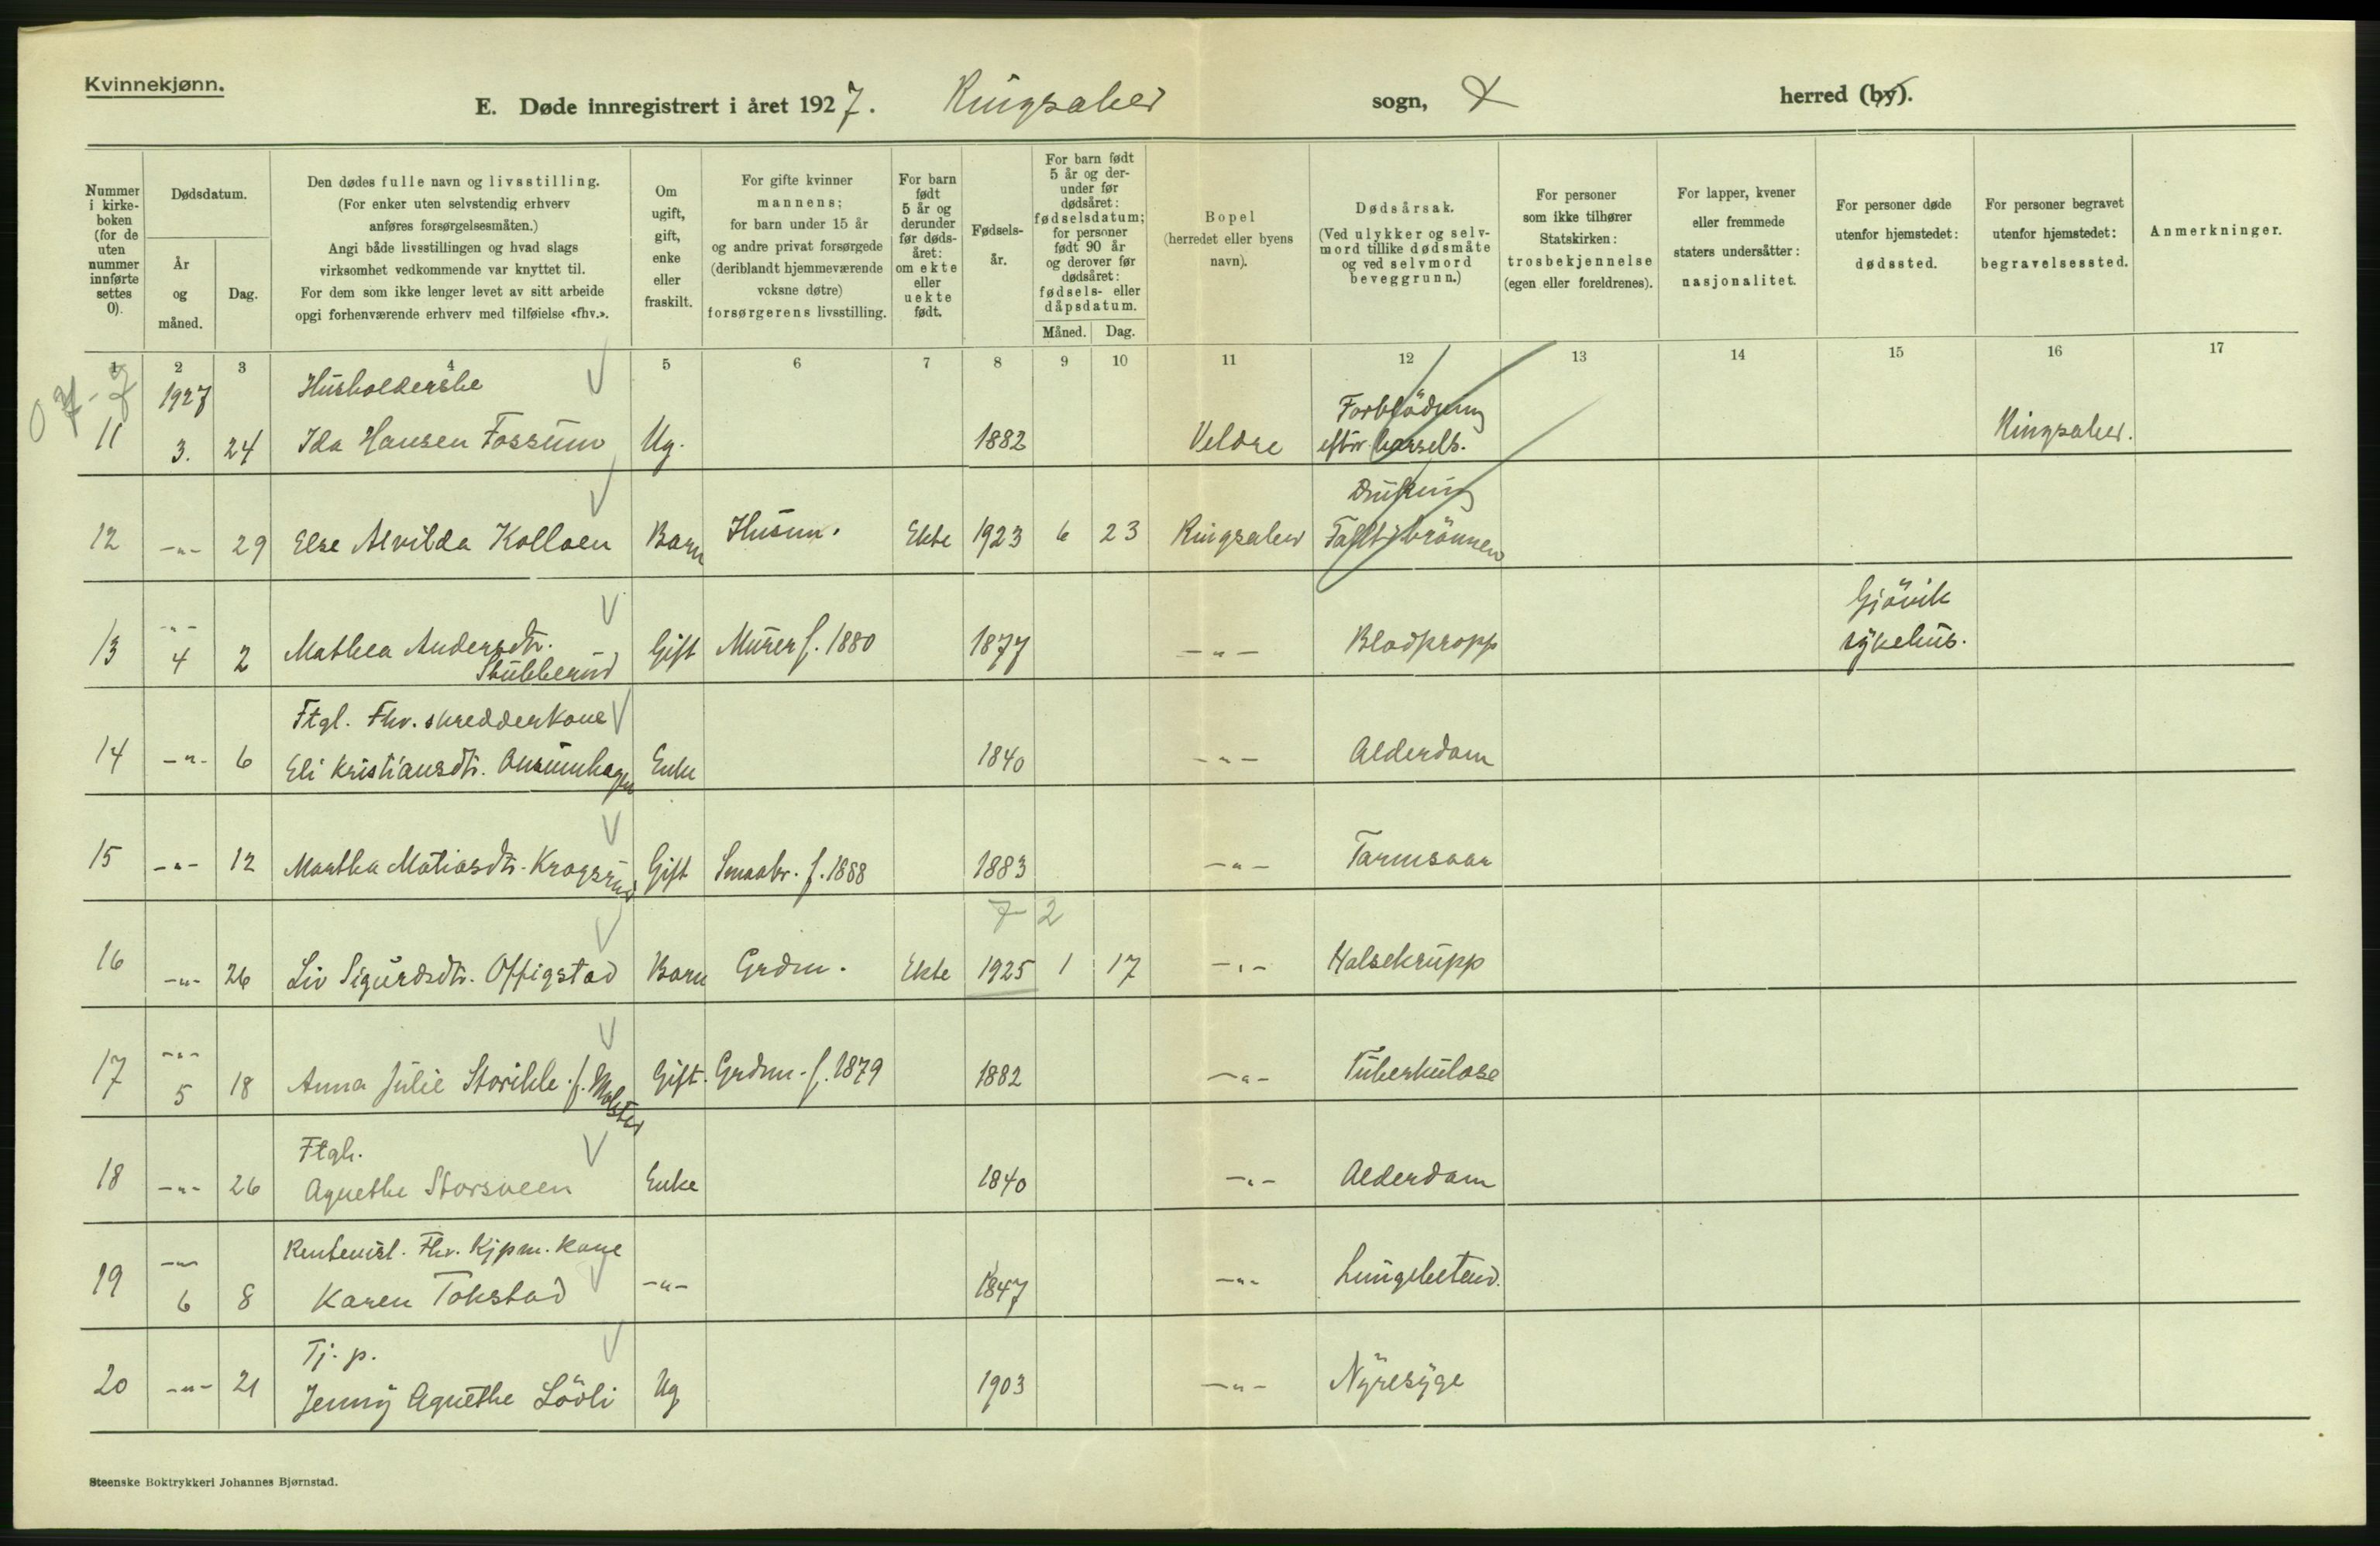 Kvinnekjønn.
E. Døde innregistrert i året 1927. Ringsaker sogn, herred (by).
Nummer i kirkeboken (for de uten nummer innførte settes 0).
Dødsdatum.
År og måned.
Dag.
Den dødes fulle navn og livsstilling.
(For enker uten selvstendig erhverv
anføres forsørgelsesmåten.)
Angi både livsstillingen og hvad slags
virksomhet vedkommende var knyttet til.
For dem som ikke lenger levet av sitt arbeide
opgi forhenværende erhverv med tilføielse «fhv.».
Om ugift, gift, enke eller fraskilt.
For gifte kvinner
mannens;
for barn under 15 år
og andre privat forsørgede
(deriblandt hjemmeværende
voksne døtre)
forsørgerens livsstilling.
For barn født 5 år og derunder før dødsåret: om ekte eller uekte født.
Fødselsår.
For barn født 5 år og derunder før dødsåret: fødselsdatum; for personer født 90 år og derover før dødsåret: fødsels- eller dåpsdatum.
Måned. Dag.
Bopel
(herredet eller byens
navn).
Dødsårsak.
(Ved ulykker og selvmord tillike dødsmåte
og ved selvmord
beveggrunn.)
For personer
som ikke tilhører
Statskirken:
trosbekjennelse
(egen eller foreldrenes).
For lapper, kvener
eller fremmede
staters undersåtter:
nasjonalitet.
For personer døde
utenfor hjemstedet:
dødssted.
For personer begravet
utenfor hjemstedet:
begravelsessted.
Anmerkninger.
1 2 3 4 5 6 7 8 9 10 11 12 13 14 15 16 17
1927 Husholderske Forblödning
11 3. 24 Ida Hansen Fossum Ug. 1882 Veldre efter barsels. Ringsaker.
Drukning
12 -"- 29 Else Alvilda Kolloen Barn Husm. Ekte 1923 6 23 Ringsaker Falt i brönnen
-"- Gjövik
13 4 2 Mathea Andersdtr. Gift Murer f. 1880 1877 -"- Blodpropp sykehus.
Stubberud
Ftgl. Fhv. skredderkone
14 -"- 6 Eli Kristiansdtr. Enke 1840 -"- Alderdom
15 -"- 12 Martha Matiasdtr. Krogsrud Gift Smaabr. f. 1888 1883 -"- Tarmsaar
7 2
16 -"- 26 Liv Sigurdsdtr. Offigstad Barn Grdm. Ekte 1925 1 17 -"- Halsekrupp
-"-
17 5 18 Anna Julie Storihle f. Molster Gift. Grdm. f. 1879 1882 -"- Tuberkulose
Ftgh.
18 -"- 26 Agnethe Storsveen Enke 1840 -"- Alderdom
-"- Rentenist. Fhv. Kjpm. kone
19 6 8 Karen Tokstad -"- 1847 -"- Lungebetend.
Tj. p.
20 -"- 21 Jenny Agnethe Lövli Ug 1903 -"- Nyresyge
Steenske Boktrykkeri Johannes Bjørnstad.